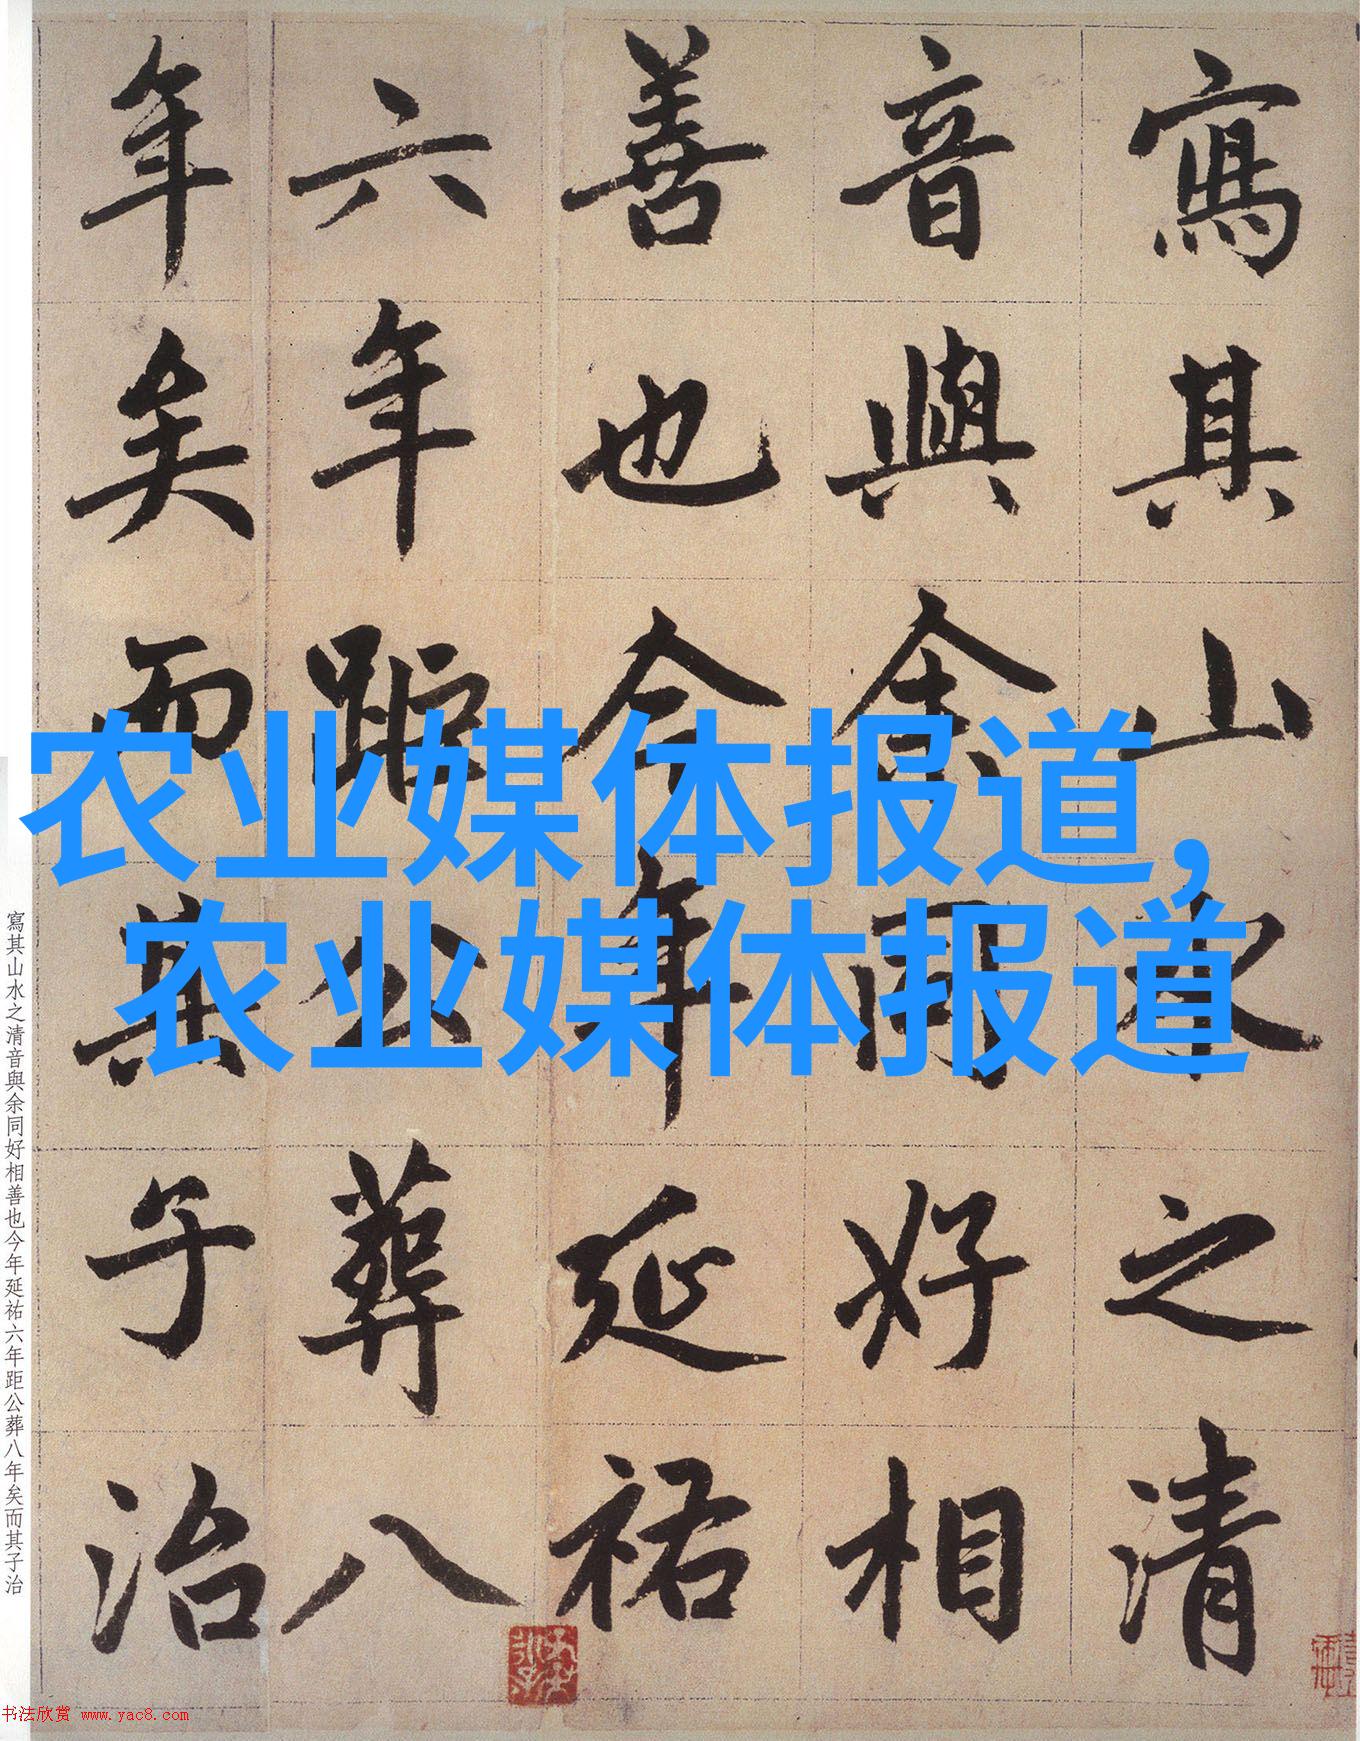 寫其山水之清
音與余同好相
善也今年延祐
六年距公葬八
年矣而其子治
农业媒体报道,
农业媒体报道
寫其山水之清音與余同好相善也今年延祐六年距公葬八年矣而其子治
书法欣赏 www.yac8.com